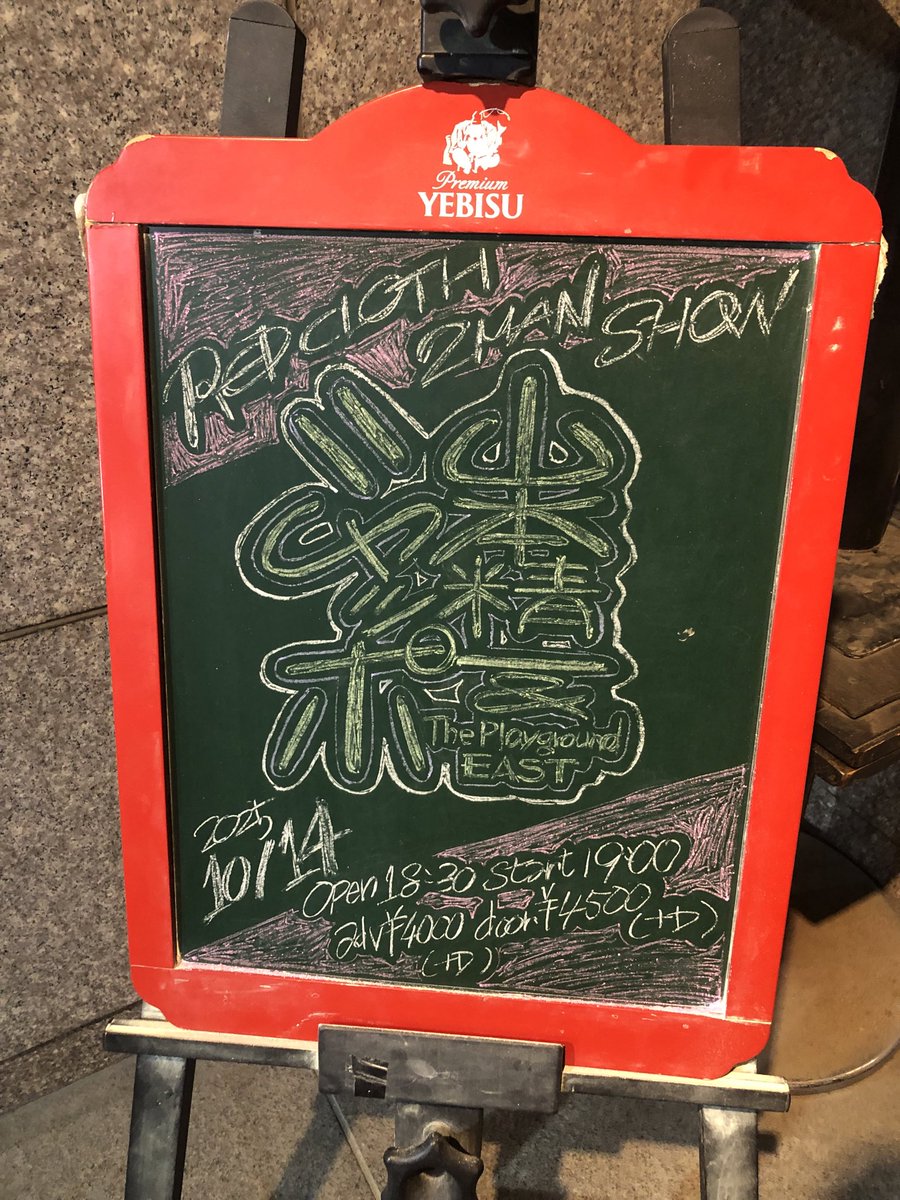 Premium
YEBISU
RED CLOTH
2MAN SHOW
精
The Playground
EAST
2025
10/14
Open 18:30 Start 19:00
adv ¥4000 door ¥4500 (+D)
(+D)